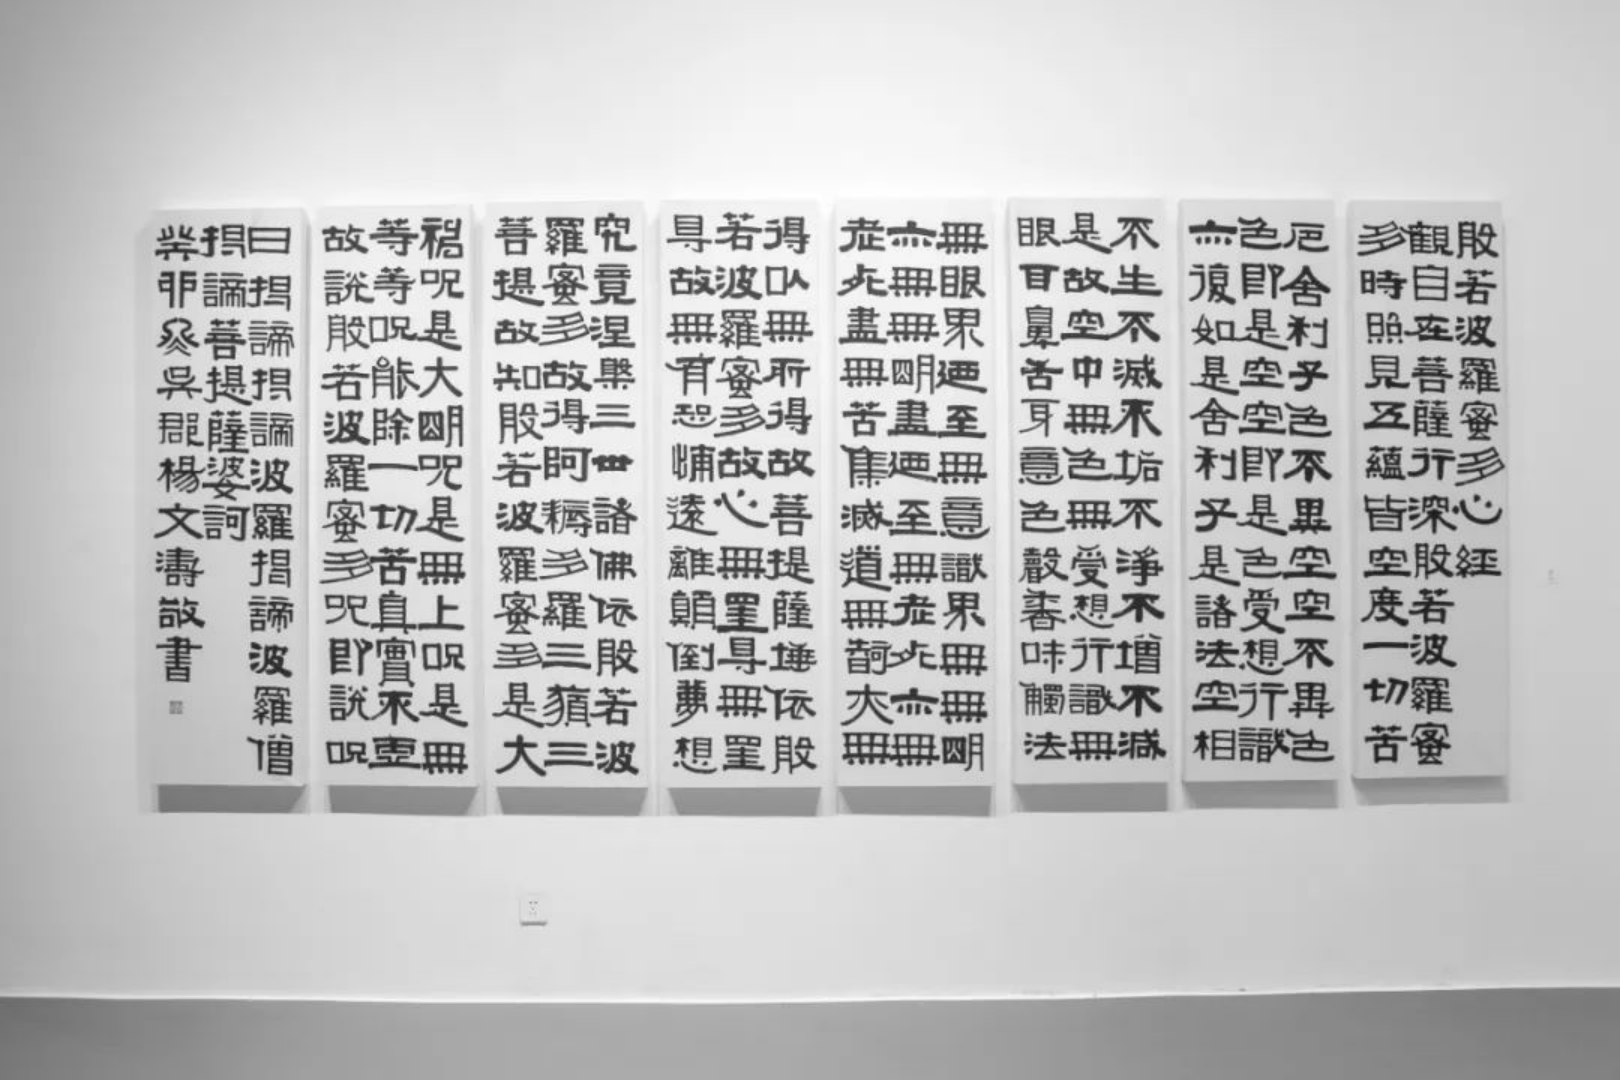 般若波羅蜜多心經
觀自在菩薩行深般若波羅蜜
多時照見五蘊皆空度一切苦
厄舍利子色不異空空不異色
色即是空空即是色受想行識
亦復如是舍利子是諸法空相
不生不滅不垢不淨不增不減
是故空中無色無受想行識無
眼耳鼻舌身意色聲香味觸法
無眼界迺至無意識界無無明
亦無無明盡迺至無老死亦無
老死盡無苦集滅道無智亦無
得以無所得故菩提薩埵依般
若波羅蜜多故心無罣㝵無罣
㝵故無有恐怖遠離顛倒夢想
究竟涅槃三世諸佛依般若波
羅蜜多故得阿耨多羅三藐三
菩提故知般若波羅蜜多是大
神呪是大明呪是無上呪是無
等等呪能除一切苦真實不虛
故說般若波羅蜜多呪即說呪
曰揭諦揭諦波羅揭諦波羅僧
揭諦菩提薩婆訶
癸卯冬吳郡楊文濤敬書